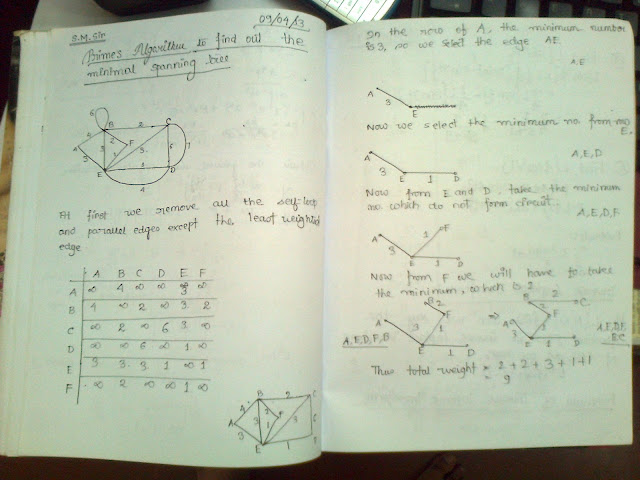 S.M. Sir
09/04/13
Prime's Algorithm to find out the
minimal spanning tree
6
B
2
C
4
2
F
7
A
3
3
1
3
6
E
1
D
4
At first we remove all the self-loop
and parallel edges except the least weighted
edge
A B C D E F
A ∞ 4 ∞ ∞ 3 ∞
B 4 ∞ 2 ∞ 3 2
C ∞ 2 ∞ 6 3 ∞
D ∞ ∞ 6 ∞ 1 ∞
E 3 3 3 1 ∞ 1
F ∞ 2 ∞ ∞ 1 ∞
B 2 C
4 2 F
A 3 1 3
3
E 1
In the row of A, the minimum number
is 3, so we select the edge AE.
A,E
A
3
E
Now we select the minimum no. from
E,
A
3
E 1 D
A,E,D
Now from E and D, take the minimum
no. which do not form circuit.
A,E,D,F
F
A
3
1
E 1 D
Now from F we will have to take
the minimum, which is 2
B 2
F
A
3
1
E 1 D
A,E,D,F,B
⇒
B 2 C
2
F
A
3
1
E 1 D
A,E,D,F,
B,C
Thus total weight = 2+2+3+1+1
= 9